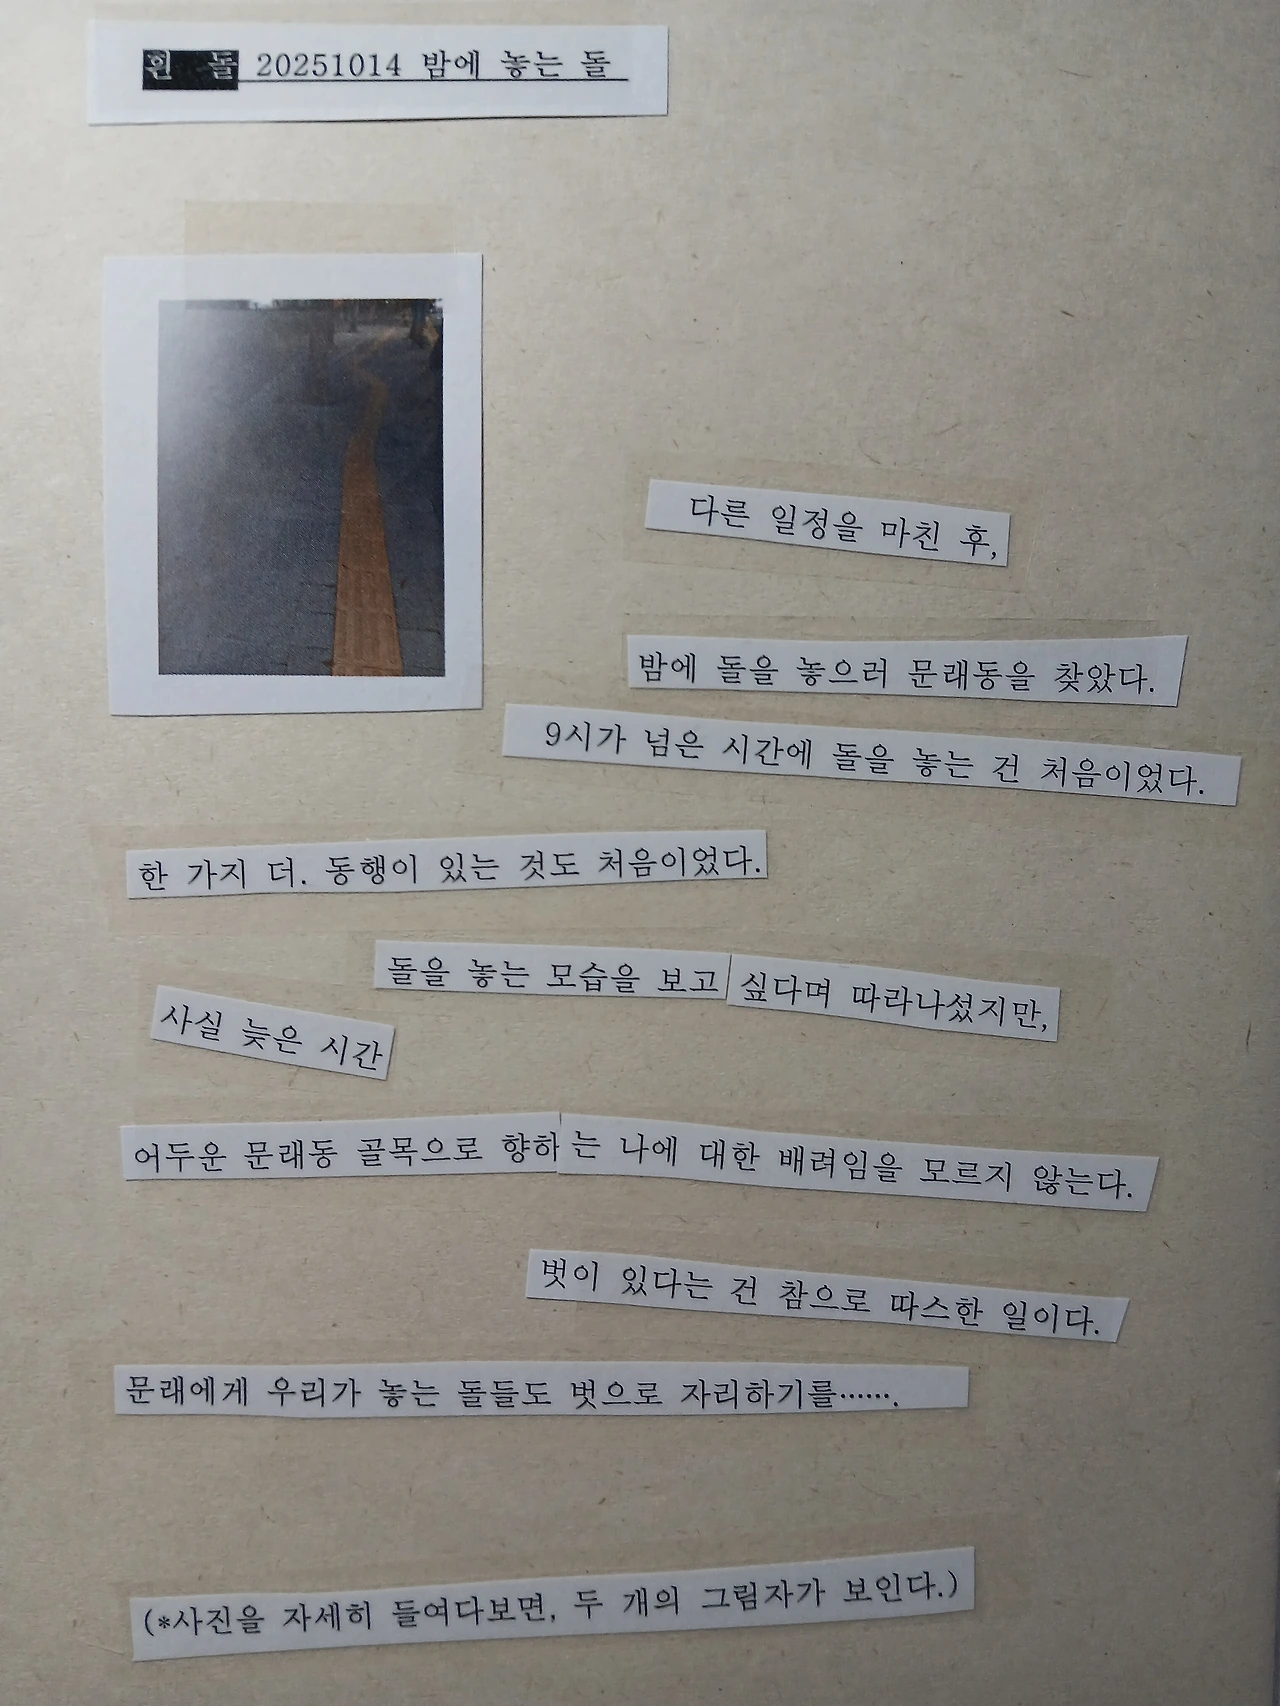 흰 돌 20251014 밤에 놓는 돌
다른 일정을 마친 후,
밤에 돌을 놓으러 문래동을 찾았다.
9시가 넘은 시간에 돌을 놓는 건 처음이었다.
한 가지 더. 동행이 있는 것도 처음이었다.
돌을 놓는 모습을 보고 싶다며 따라나섰지만,
사실 늦은 시간
어두운 문래동 골목으로 향하는 나에 대한 배려임을 모르지 않는다.
벗이 있다는 건 참으로 따스한 일이다.
문래에게 우리가 놓는 돌들도 벗으로 자리하기를…….
(*사진을 자세히 들여다보면, 두 개의 그림자가 보인다.)